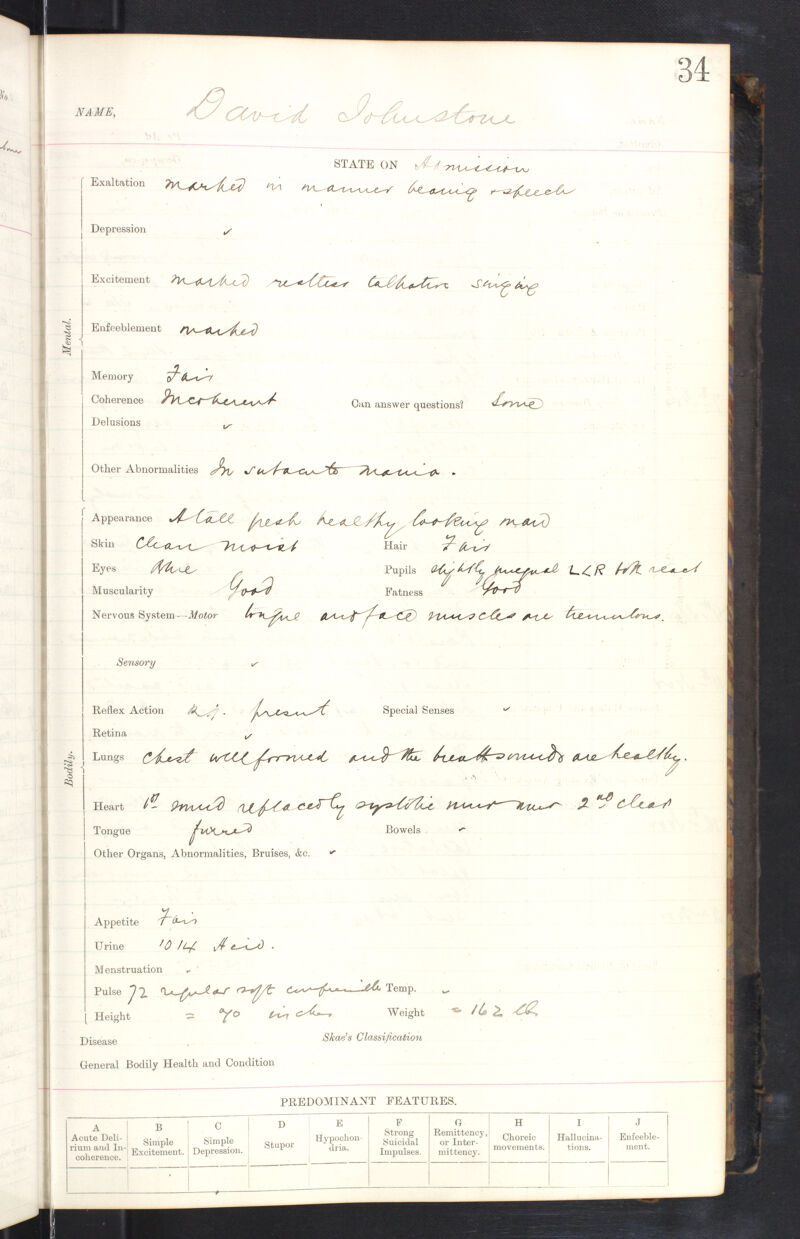 34
NAME, David Johnstone
STATE ON Admission
Mental.
Exaltation marked in manner bearing + speech
Depression ✓
Excitement marked restless talkative singing
Enfeeblement marked
Memory Fair
Coherence Incoherent Can answer questions? Some
Delusions ✓
Other Abnormalities In subacute mania.
Bodily.
Appearance A tall fresh healthy looking man
Skin Clean moist Hair Fair
Eyes Blue Pupils slightly unequal L<R both react
Muscularity Good Fatness Good
Nervous System—Motor tongue and face muscles are tremulous.
Sensory ✓
Reflex Action K.j. present Special Senses ✓
Retina ✓
Lungs Chest well formed and the breath sounds are healthy.
Heart 1st sound replaced by systolic murmur 2nd clear
Tongue furred Bowels ✓
Other Organs, Abnormalities, Bruises, &c. ✓
Appetite Fair
Urine 1014 Acid.
Menstruation ✓
Pulse 72 regular soft compressible Temp. ✓
Height = 70 inches Weight = 162 lbs
Disease Skae's Classification
General Bodily Health and Condition
PREDOMINANT FEATURES.
A B C D E F G H I J
Acute Delirium and Incoherence. Simple Excitement. Simple Depression. Stupor Hypochondria. Strong Suicidal Impulses. Remittency, or Intermittency. Choreic movements. Hallucinations. Enfeeblement.